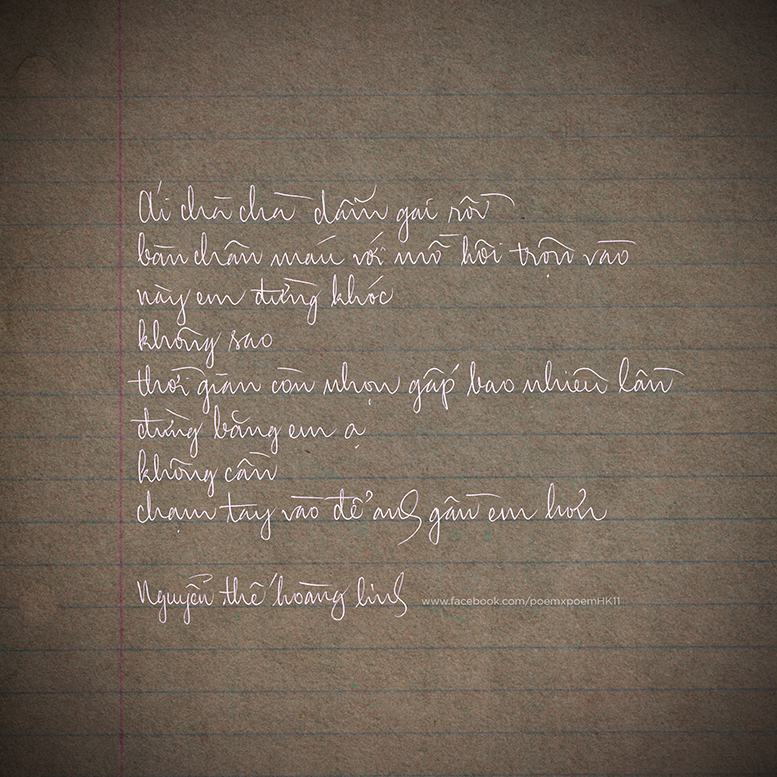 ái chà chà dẫm gai rồi
bàn chân máu với mồ hôi trộn vào
này em đừng khóc
không sao
thời gian còn nhọn gấp bao nhiêu lần
đừng băng em ạ
không cần
chạm tay vào để anh gần em hơn
Nguyễn thế hoàng linh
www.facebook.com/poemxpoemHK11